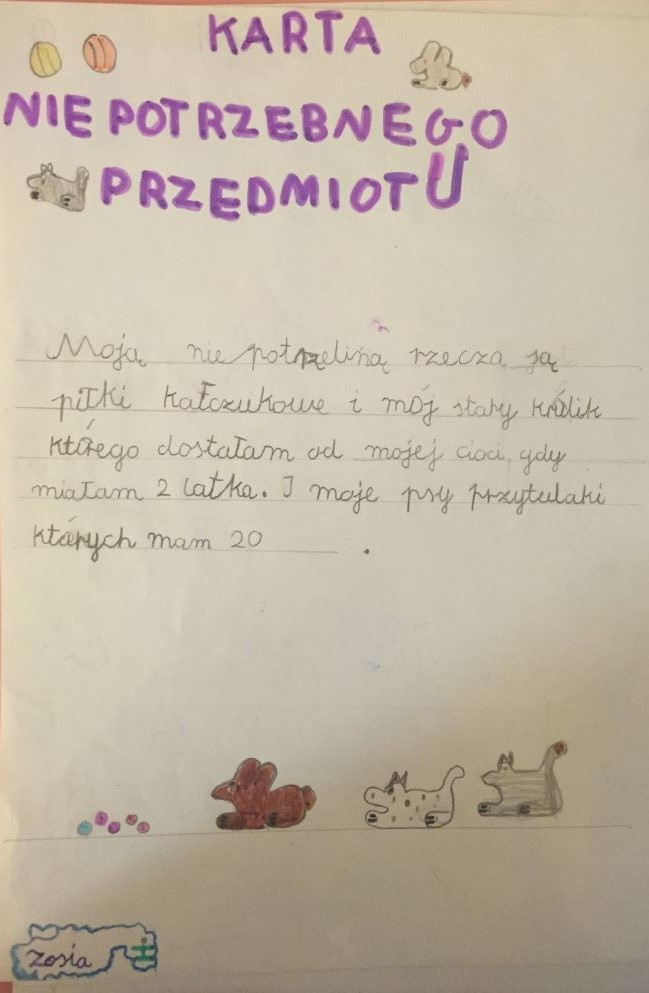 KARTA
NIEPOTRZEBNEGO
PRZEDMIOTU
Moją nie potrzeliną rzeczą są
piłki kałczukowe i mój stary królik
którego dostałam od mojej cioci, gdy
miałam 2 latka. I moje psy przytulaki
których mam 20 .
zosia